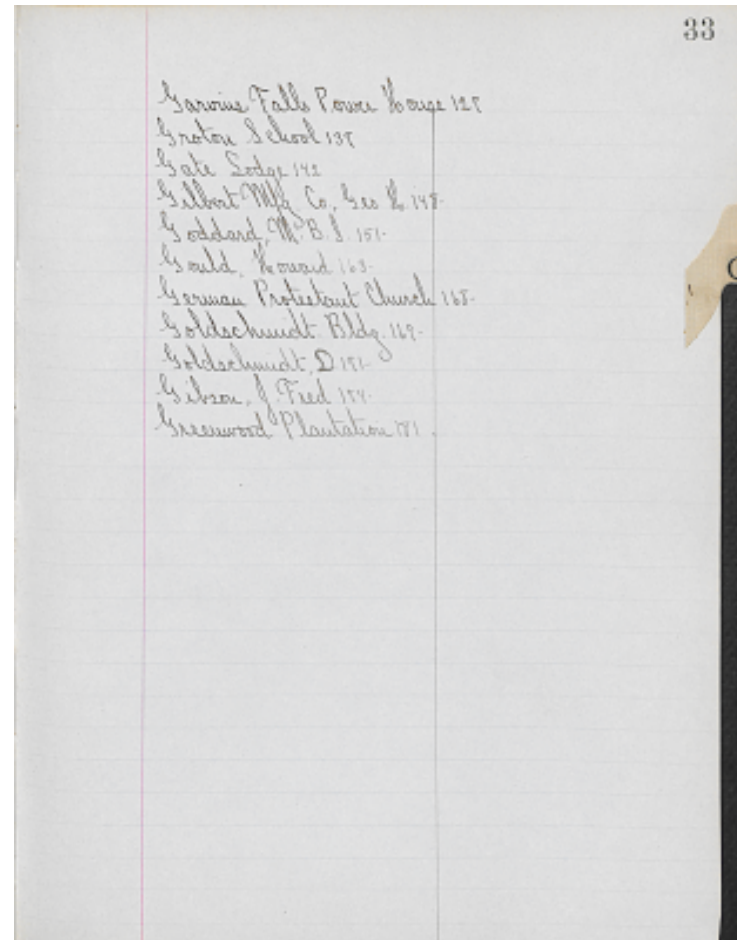 33
Garvins Falls Power House
Groton School 137
Gate Lodge 142
Gilbert Mfg. Co, Geo H. 148-
Goddard, M. B. J. 151-
Gould, Howard 163-
German Protestant Church 168-
Goldschmidt Bldg. 169-
Goldschmidt, D
Gibson, J. Fred
Greenwood Plantation 181.